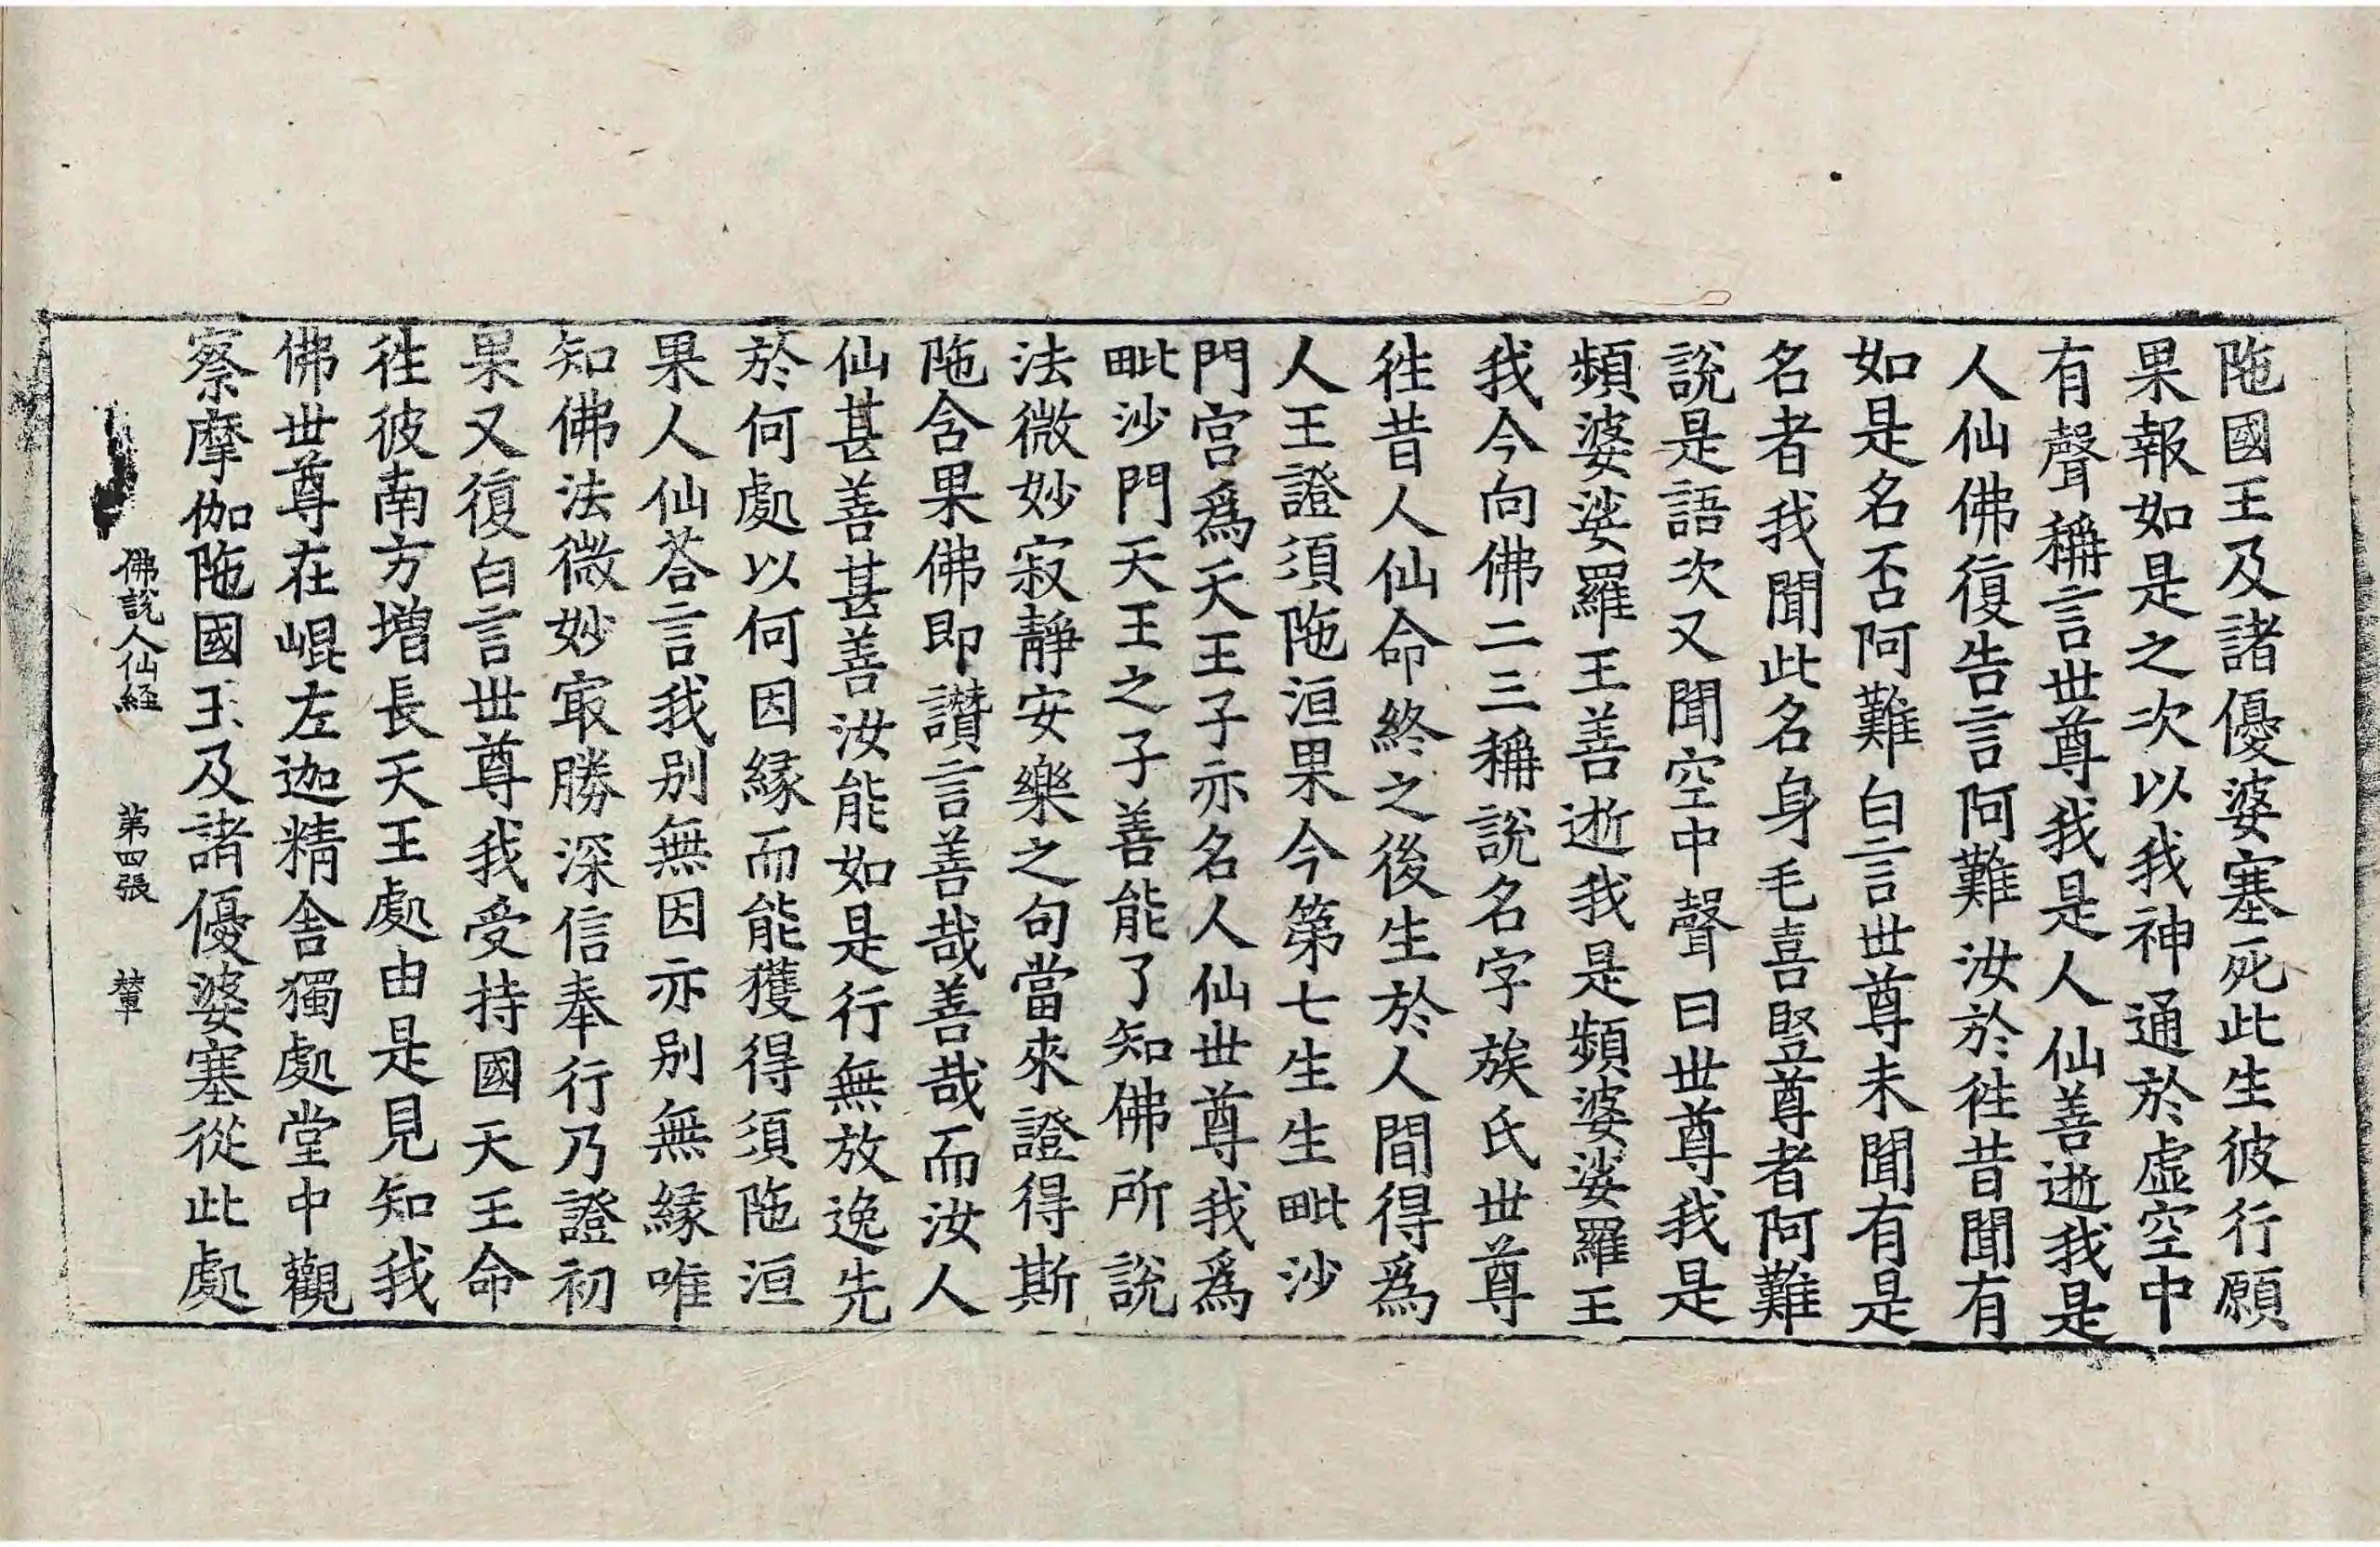 陁國王及諸優婆塞死此生彼行願
果報如是之次以我神通於虛空中
有聲稱言世尊我是人仙善逝我是
人仙佛復告言阿難汝於徃昔聞有
如是名否阿難白言世尊未聞有是
名者我聞此名身毛喜竪尊者阿難
說是語次又聞空中聲曰世尊我是
頻婆娑羅王善逝我是頻婆娑羅王
我今向佛二三稱說名字族氏世尊
徃昔人仙命終之後生於人間得爲
人王證須陁洹果今第七生生毗沙
門宮爲天王子亦名人仙世尊我爲
毗沙門天王之子善能了知佛所說
法微妙寂靜安樂之句當來證得斯
陁含果佛即讚言善哉善哉而汝人
仙甚善甚善汝能如是行無放逸先
於何處以何因縁而能獲得須陁洹
果人仙荅言我別無因亦別無縁唯
知佛法微妙㝡勝深信奉行乃證初
果又復白言世尊我受持國天王命
徃彼南方增長天王處由是見知我
佛世尊在崐左迦精舍獨處堂中觀
察摩伽陁國王及諸優婆塞從此處
佛說人仙経 第四張 輦